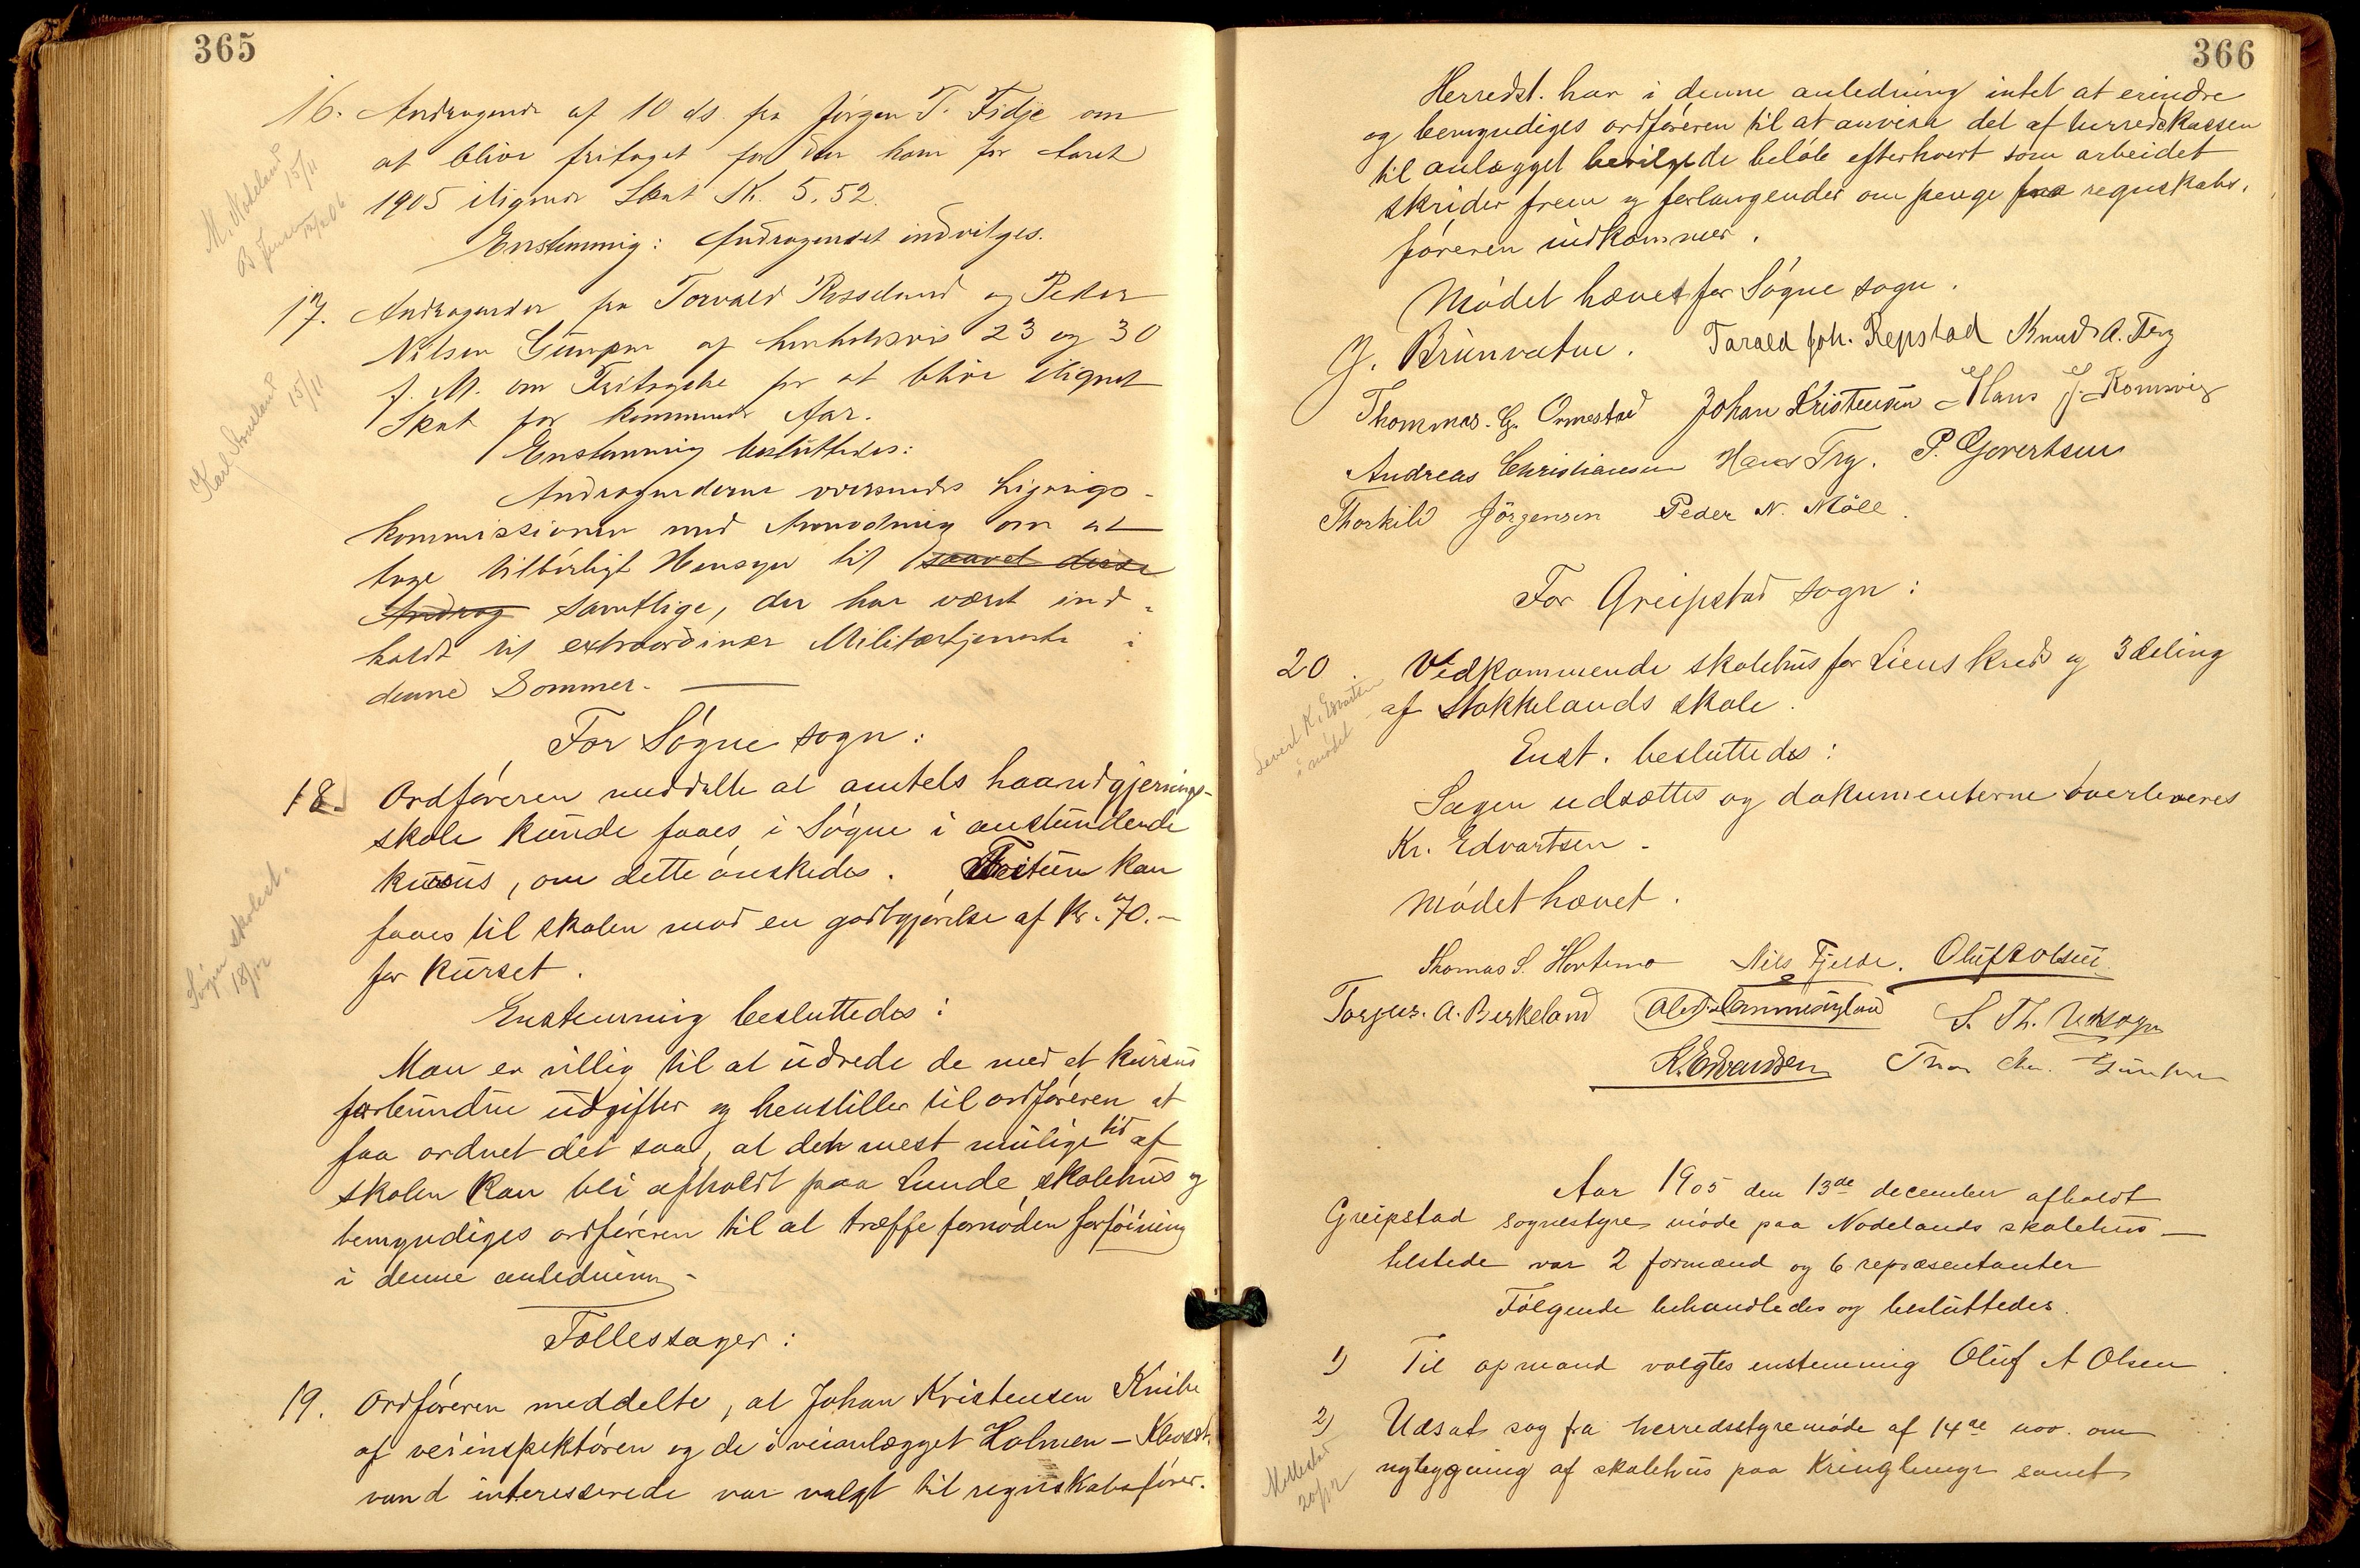 365
16. Andragende af 10 ds. fra Jørgen T. Fidje om
at blive fritaget for den ham for Aaret
1905 ilignede Skat Kr. 5,52.
Enstemmig: Andragendet indvilges.
M. Nodeland 15/11
17. Andragender fra Torvald Rosseland og Peder
Nilsen Gumpen af henholdsvis 23 og 30
f. M. om Fritagelse for at blive ilignet
Skat for kommende Aar.
Karl Stousland 15/11
Enstemmig besluttedes:
Andragenderne oversendes Ligнings-
kommissionen med Anmodning om at
tage tilbørligt Hensyn til saavel disse
Andrag samtlige, der har været ind-
kaldt til extraordinær Militærtjeneste i
denne Sommer.
For Søgne sogn:
18. Ordføreren meddelte at amtets haandgjernings-
skole kunde faaes i Søgne i anstundende
kursus, om dette ønskedes. Fritün kan
faaes til skolen mod en godtgjørelse af Kr. 70.-
for kurset.
Søgne skolest. 18/12
Enstemmig besluttedes:
Man er villig til at udrede de med et kursus
forbundne udgifter og henstiller til ordføreren at
faa ordnet det saa, at den mest mulige tid af
skolen kan bli afholdt paa Lunde skolehus og
bemyndiges ordføreren til at træffe fornøden forføining
i denne anledning.
Fællessager:
19. Ordføreren meddelte, at Johan Kristensen Knibe
af veiinspektøren og de i veianlægget Holmen - Kleveset-
vand interesserede var valgt til regnskabsfører.
366
Herredst. har i denne anledning intet at erindre
og bemyndiges ordføreren til at anvise det af herredskassen
til anlægget bevilgede beløb efterhvert som arbeidet
skrider frem og forlangender om penge fra regnskabs-
føreren indkommer.
Mødet hævet for Søgne sogn.
J. Brunvatne. Tarald Joh. Repstad Knud A. Try
Thommas. G. Ormestad Johan Kristensen Hans J. Romsvig
Andreas Christiansen Hans Try. P. Govertsen
Thorkild Jörgensen Peder N. Möll.
For Greipstad sogn:
20. Vedkommende skolehus for Liens kreds og 3deling
af Stokkelands skole.
Levert K. Edvartsen
i mødet
Enst. besluttedes:
Sagen udsættes og dokumenterne overleveres
Kr. Edvartsen.
Mødet hævet.
Thomas S. Hortemo Nils Fjelde. Oluf A Olsen
Torjus. A. Birkeland
K. Edvardsen
Aar 1905 den 13de december afholdt
Greipstad sognestyre møde paa Nodelands skolehus -
tilstede var 2 formænd og 6 repræsentanter
Følgende behandledes og besluttedes.
1) Til opmand valgtes enstemmig Oluf A Olsen
2) Udsat sag fra herredsstyremøde af 14de nov. om
nybygning af skolehus paa Kringlemyr samt
20/12